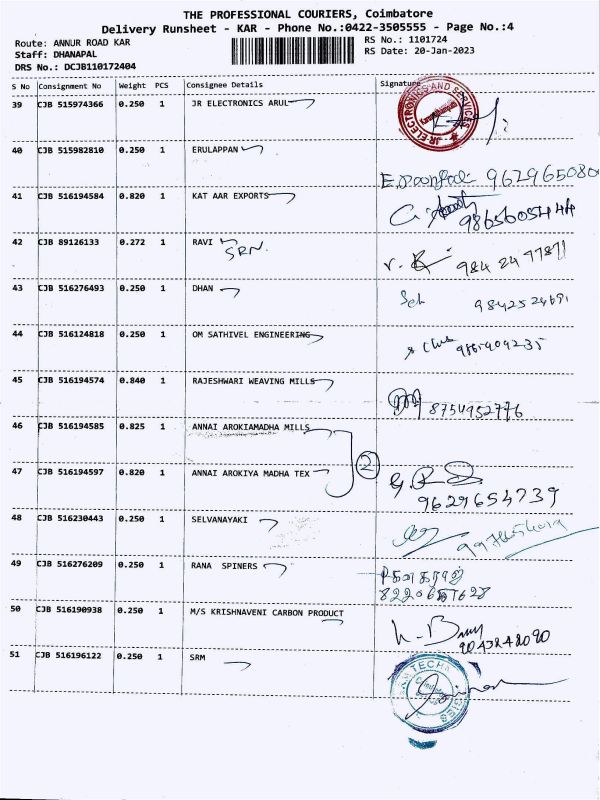 THE PROFESSIONAL COURIERS, Coimbatore
Delivery Runsheet - KAR - Phone No.:0422-3505555 - Page No.:4
Route: ANNUR ROAD KAR RS No.: 1101724
Staff: DHANAPAL RS Date: 20-Jan-2023
DRS No.: DCJB110172404
S No Consignment No Weight PCS Consignee Details Signature
39 CJB 515974366 0.250 1 JR ELECTRONICS ARUL
JR ELECTRONICS AND SERVICES
40 CJB 515982810 0.250 1 ERULAPPAN
9629650800
41 CJB 516194584 0.820 1 KAT AAR EXPORTS
9865605444
42 CJB 89126133 0.272 1 RAVI
SRN.
43 CJB 516276493 0.250 1 DHAN
984252469
44 CJB 516124818 0.250 1 OM SATHIVEL ENGINEERING
45 CJB 516194574 0.840 1 RAJESHWARI WEAVING MILLS
8754952776
46 CJB 516194585 0.825 1 ANNAI AROKIAMADHA MILLS
2
47 CJB 516194597 0.820 1 ANNAI AROKIYA MADHA TEX
9629654739
48 CJB 516230443 0.250 1 SELVANAYAKI
49 CJB 516276209 0.250 1 RANA SPINERS
50 CJB 516190938 0.250 1 M/S KRISHNAVENI CARBON PRODUCT
9043242090
51 CJB 516196122 0.250 1 SRM